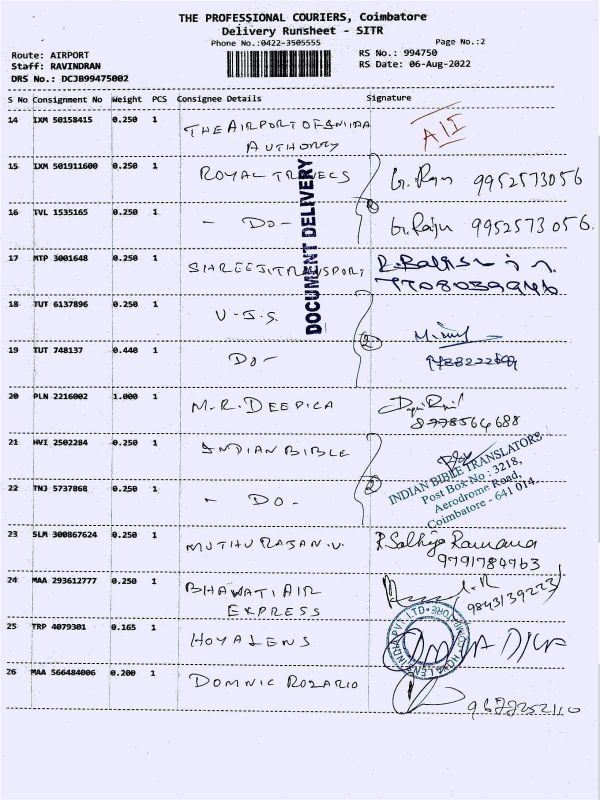 THE PROFESSIONAL COURIERS, Coimbatore
Delivery Runsheet - SITR
Phone No.:0422-3505555
Page No.:2
Route: AIRPORT
RS No.: 994750
Staff: RAVINDRAN
RS Date: 06-Aug-2022
DRS No.: DCJB99475002
S No Consignment No Weight PCS Consignee Details Signature
14 IXM 50158415 0.250 1 THE AIRPORT OF INDIA AAI
AUTHORITY
15 IXM 501911600 0.250 1 ROYAL TRAVELS G. Raju 9952573056
16 TVL 1535165 0.250 1 - DO - G. Raju 9952573056.
17 MTP 3001648 0.250 1 SHREEJI TRANSPORT
7708039946
18 TUT 6137896 0.250 1 V.J.S. 2
19 TUT 748137 0.440 1 DO-
20 PLN 2216002 1.000 1 M.R. DEEPICA
8778564688
21 HVI 2502284 0.250 1 INDIAN BIBLE
22 TNJ 5737868 0.250 1 - DO - 2
INDIAN BIBLE TRANSLATORS
Post Box No : 3218,
Aerodrome Road,
Coimbatore - 641 014.
23 SLM 300867624 0.250 1 MUTHU RAJAN.V.
9791784763
24 MAA 293612777 0.250 1 BHAWATI AIR
EXPRESS
25 TRP 4079301 0.165 1 HOYA LENS
HOYA LENS INDIA PVT. LTD
26 MAA 566484006 0.200 1 DOMNIC ROZARIO
9677252110
DOCUMENT DELIVERY